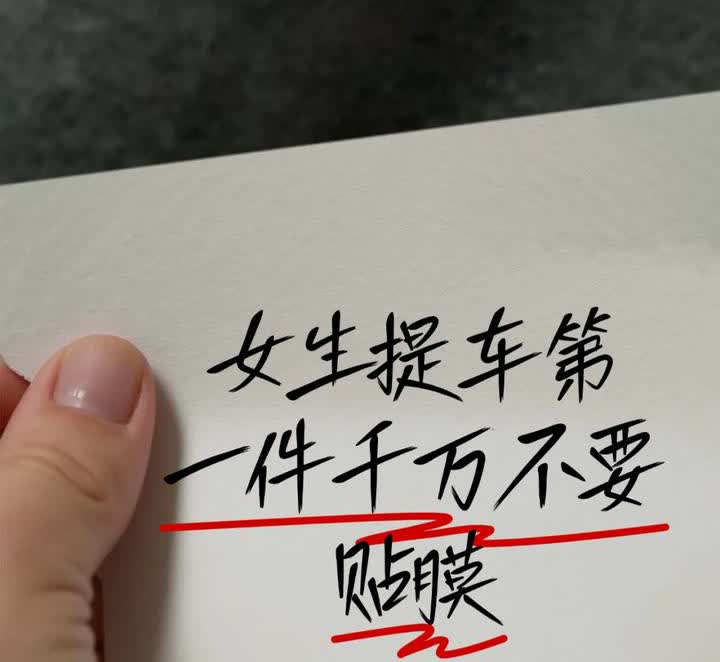 女生提车第
一件千万不要
贴膜